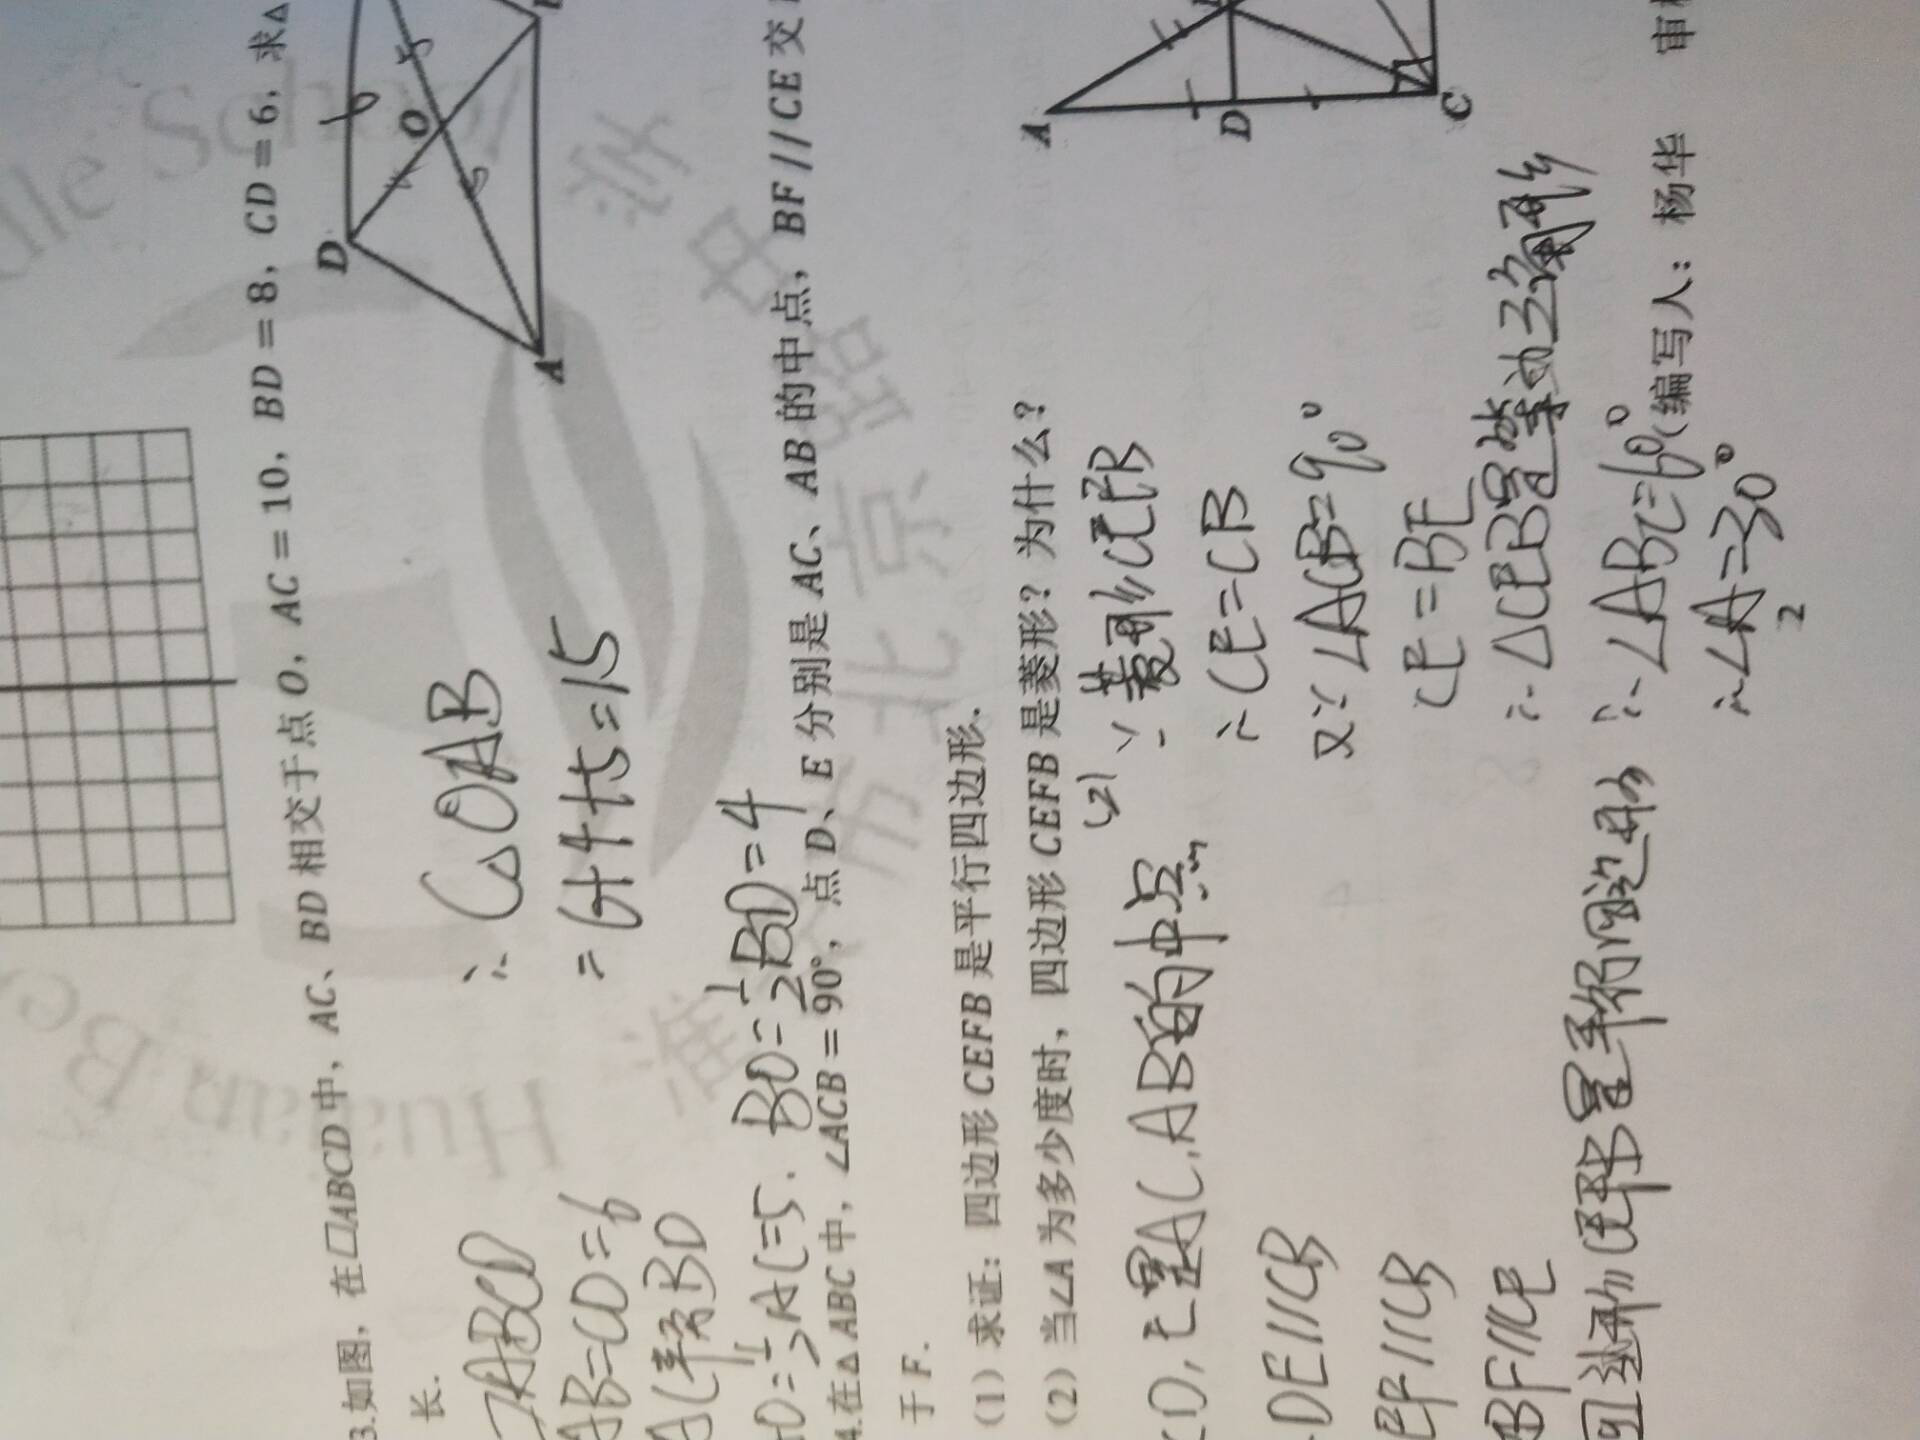 3.如图，在□ABCD中，AC、BD相交于点O，AC＝10，BD＝8，CD＝6，求△
长．
ABCD
AB=CD=6
AC平分BD
AO=1/2AC=5. BO=1/2BD=4
∴C△OAB
=6+4+5=15
D
O
A
5
5
6
4.在△ABC中，∠ACB＝90°，点D、E分别是AC、AB的中点，BF//CE交
于F．
（1）求证：四边形CEFB是平行四边形．
（2）当∠A为多少度时，四边形CEFB是菱形？为什么？
A
D
C
D,E是AC,AB的中点
DE//CB
EF//CB
BF//CE
四边形CEFB是平行四边形
(2) ∵菱形CEFB
∴CE=CB
又∵∠ACB=90°
CE=BE
∴△CEB是等边三角形
∴∠ABC=60°
∴∠A=30°
2
（编写人：杨华 审
淮 北京 中学
Huaian Be
dle School